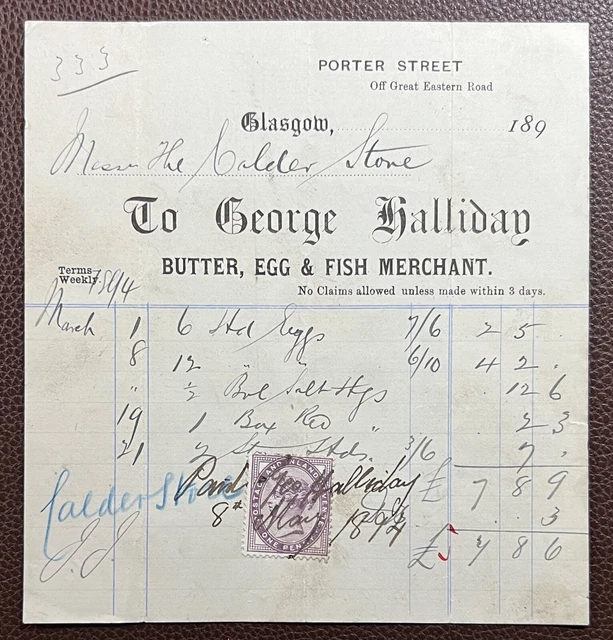 333
PORTER STREET
Off Great Eastern Road
Glasgow, 189
The Calder Store
To George Halliday
BUTTER, EGG & FISH MERCHANT.
Terms Weekly.
No Claims allowed unless made within 3 days.
March 1 6 Std Eggs 7/6 2 5 .
8 12 " " 6/10 4 2 .
" ½ Brl Salt Hgs 12 6
19 1 Box Red " 2 3
21 2 St Stds. 3/6 7 .
Paid Geo Halliday £ 7 8 9
Calder Store
8th May 1894 3
£ 7 8 6
J.J.
POSTAGE AND INLAND REVENUE
ONE PENNY